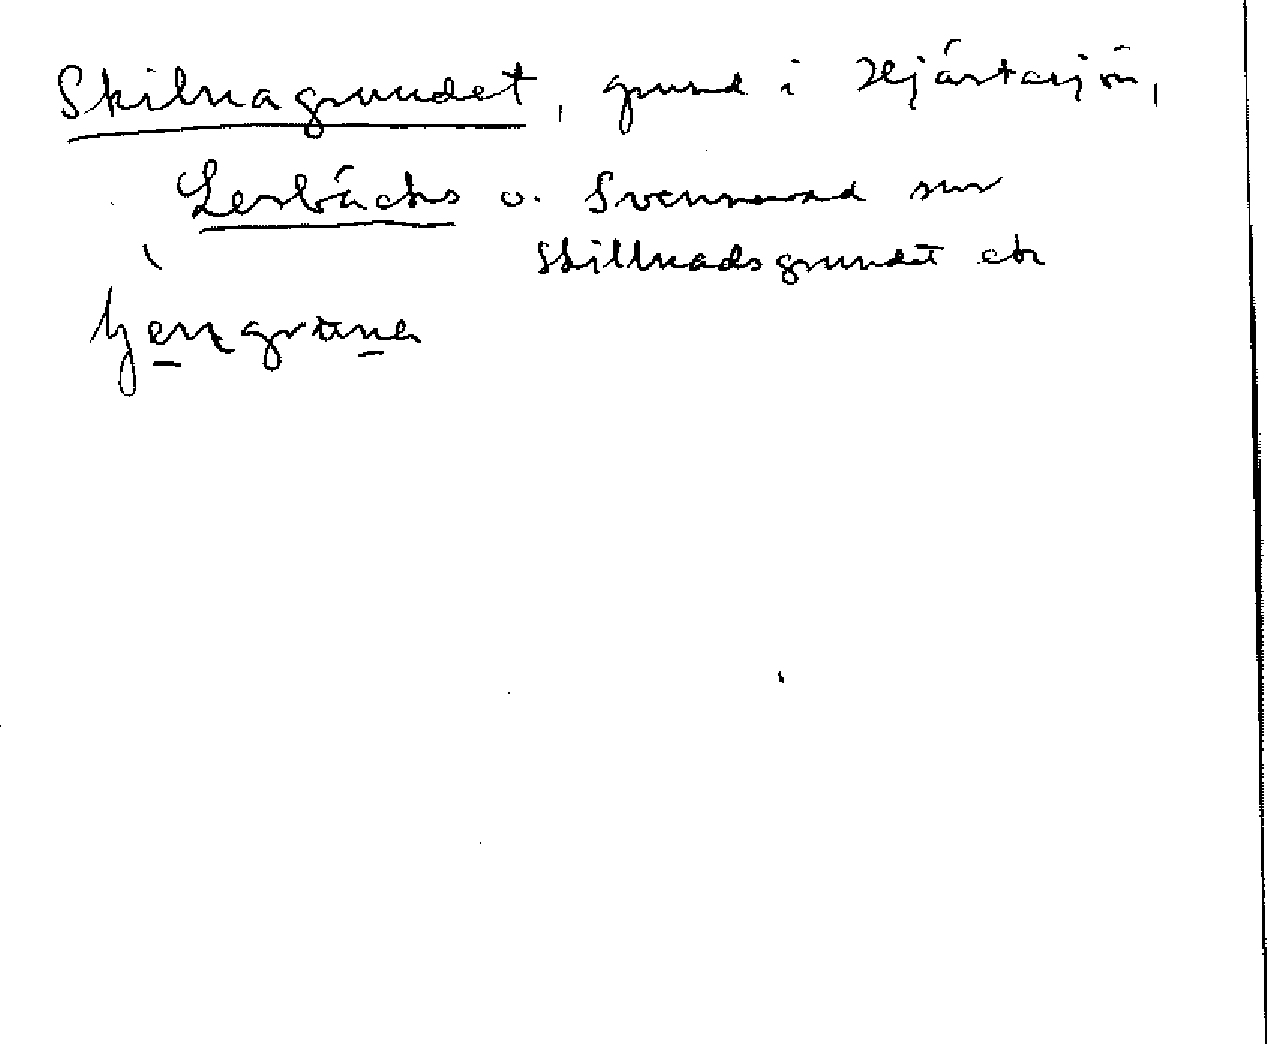 Skilnagrundet, grund i Hjärtasjön,
Lerbäcks o. Svennevad snr
Skillnadsgrundet ek